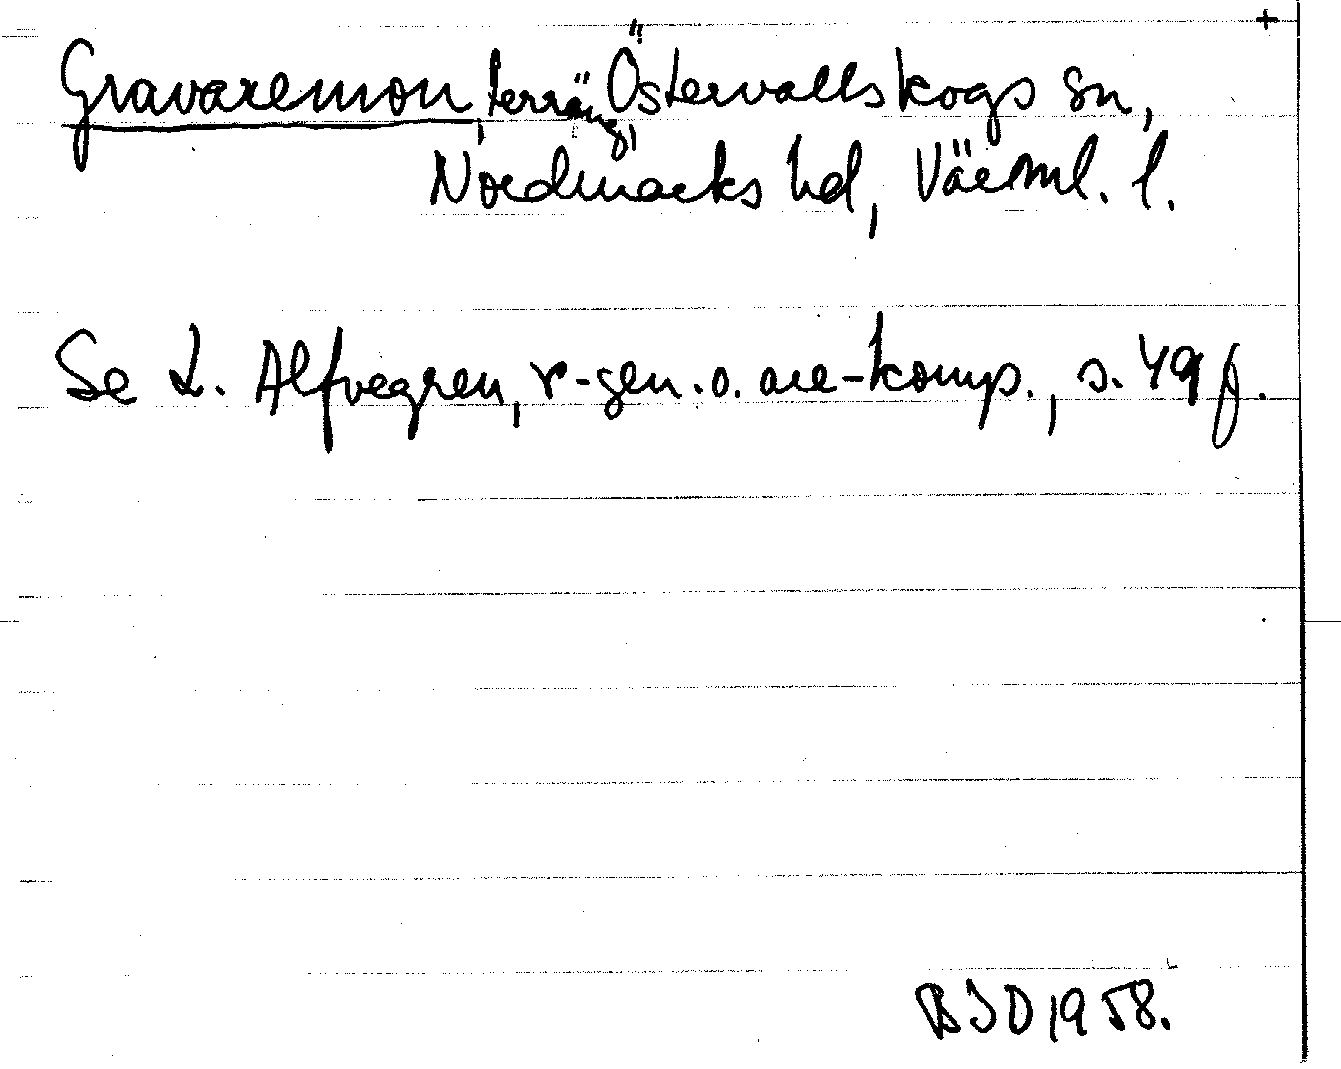 +
Gravaremon, terräng, Östervallskogs sn,
Nordmarks hd, Värml. l.
Se L. Alfvegren, r-gen. o. are-komp., s. 49 f.
BJD 1958.